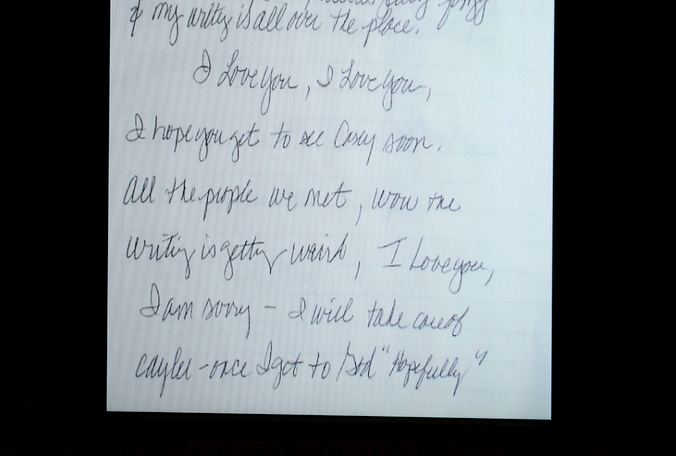 & my writing is all over the place.
I Love you, I Love you,
I hope you get to see Casey soon.
All the people we met, wow the
writing is getting weird, I Love you,
I am sorry – I will take care of
Caylee – once I get to God "Hopefully"